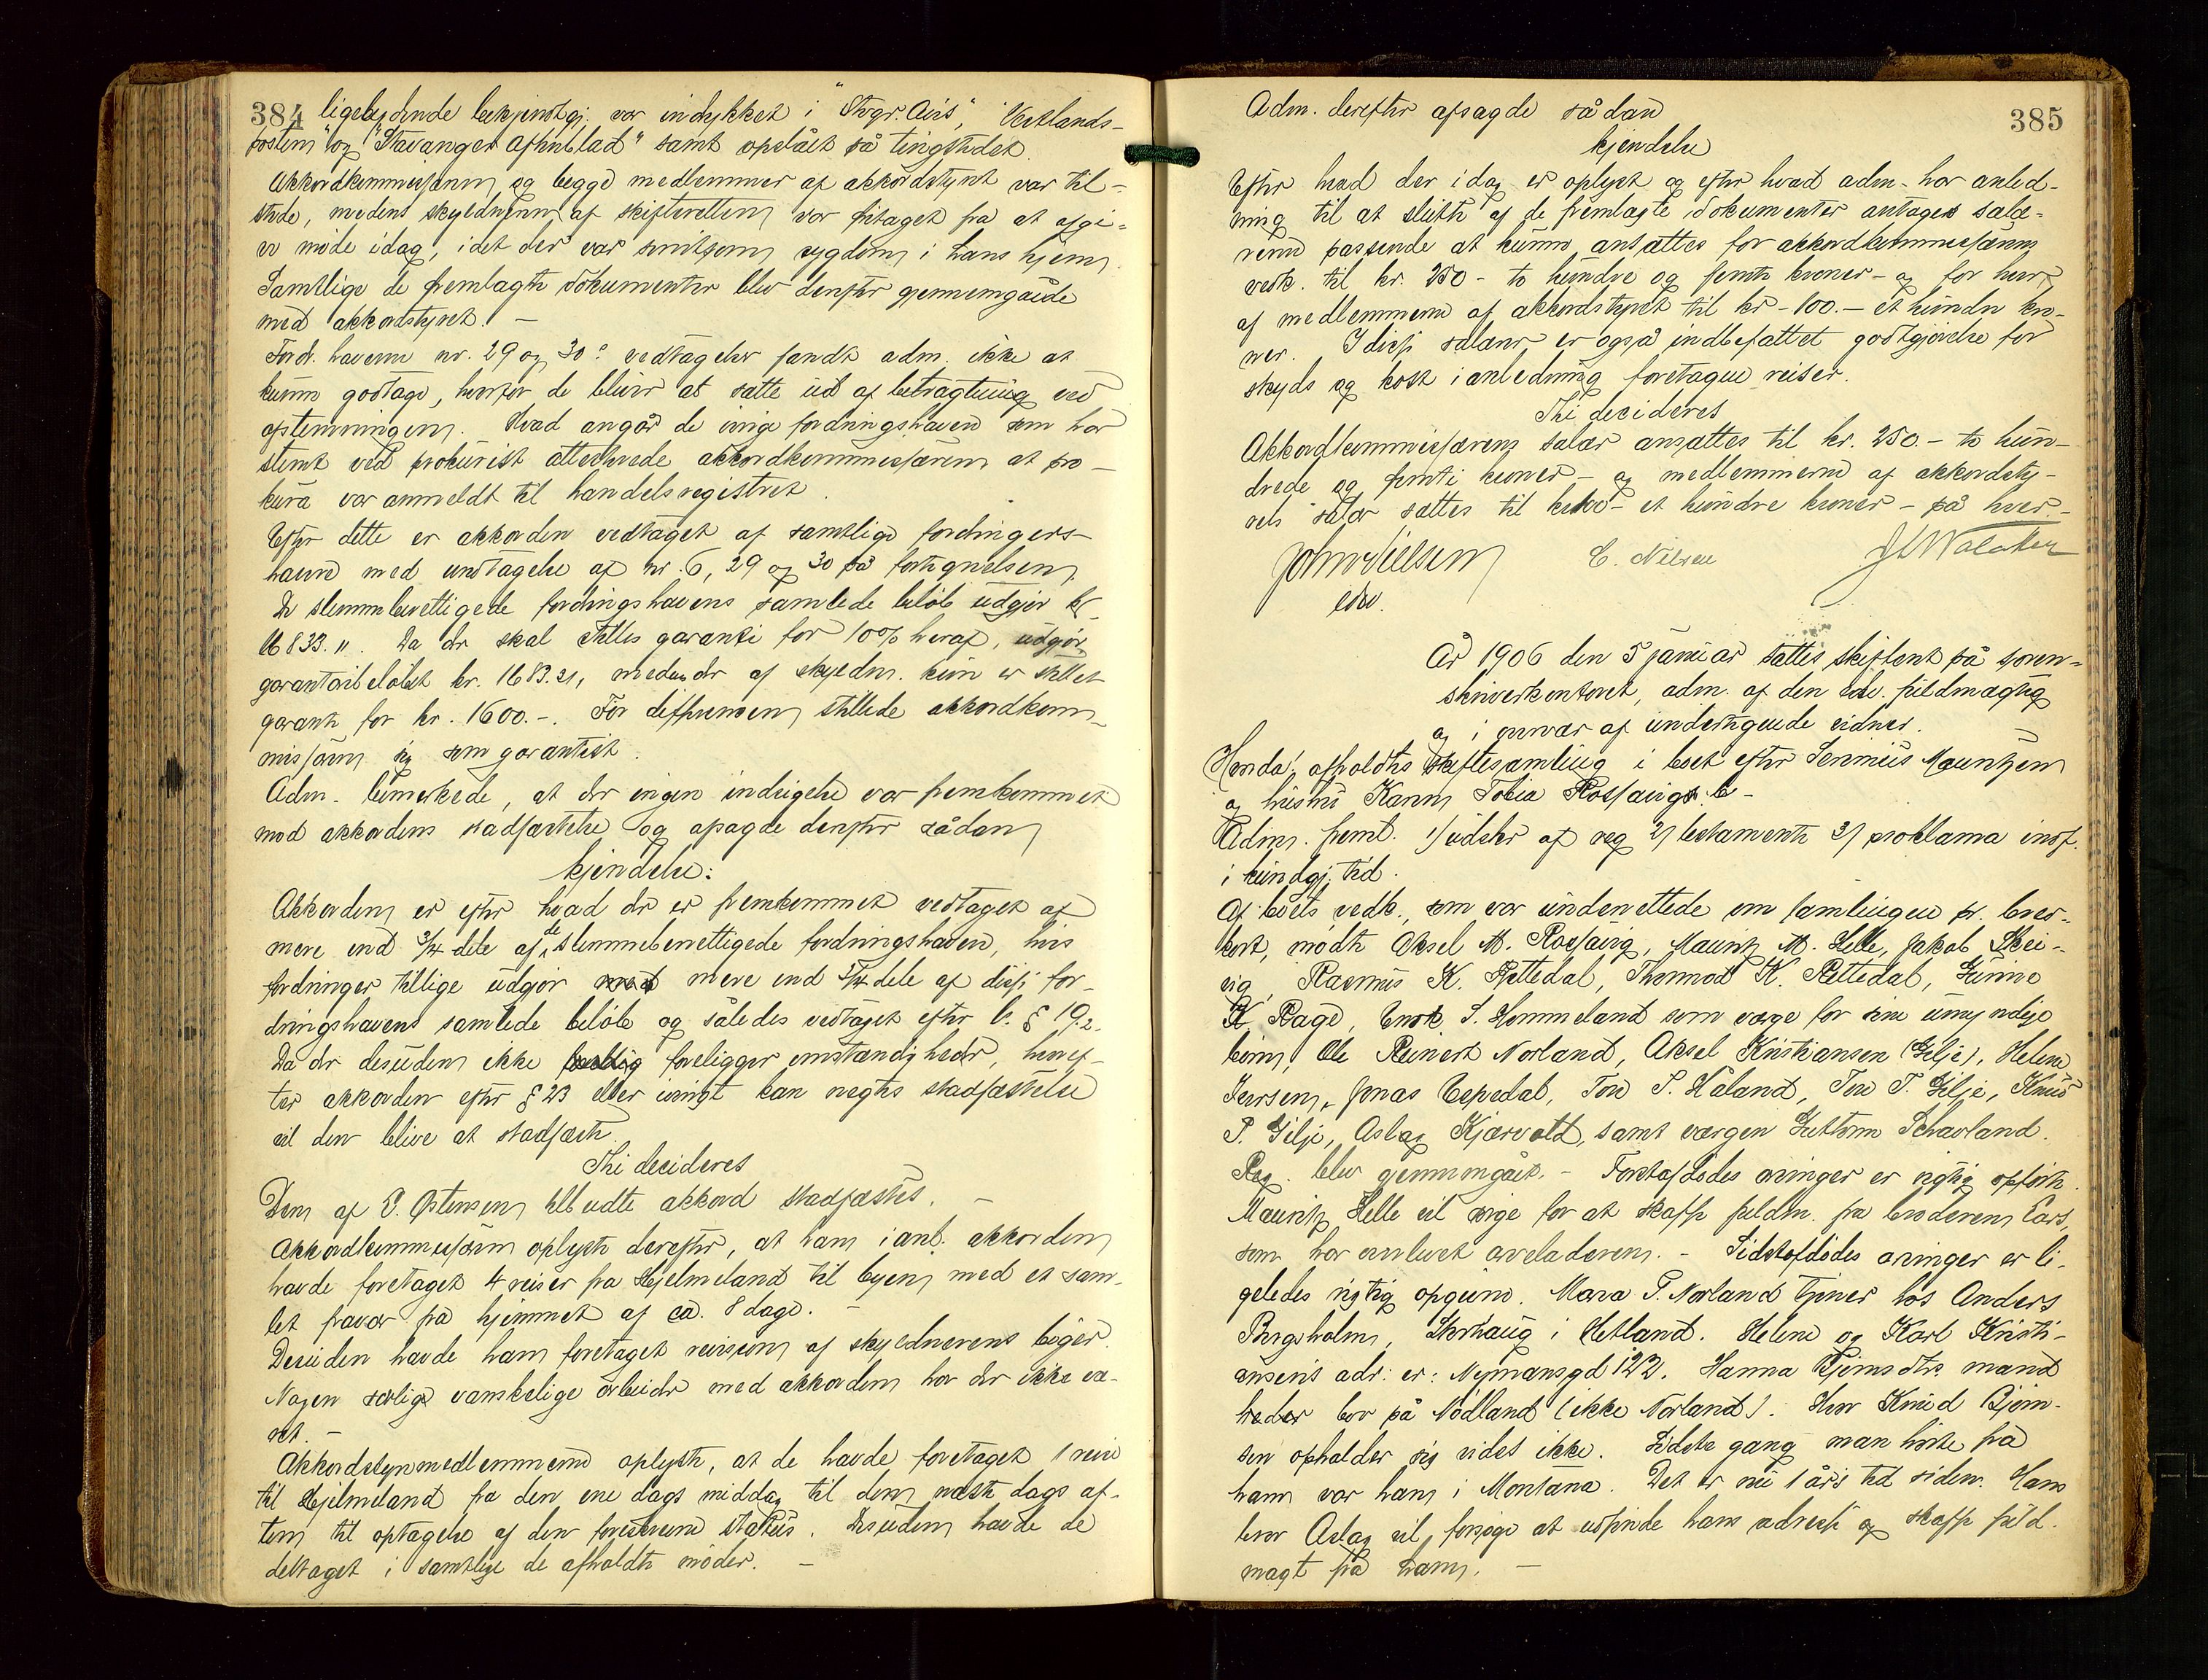 384 ligelydende bekjendtgj. var indrykket i "Stvgr. Avis", "Vestlands-
posten" og "Stavanger Aftenblad" samt opslået på tingstedet.
Akkordkommissæren og begge medlemmer af akkordstyret var til-
stede, medens skyldneren af skifteretten var fritaget fra at afgi-
ve møde idag, idet der var smitsom sygdom i hans hjem.
Samtlige de fremlagte dokumenter blev derefter gjennemgåede
med akkordstyret. —
Fordr. haverne nr. 29 og 30s vedtagelse fandt adm. ikke at
kunne godtage, hvorfor de bliver at sætte ud af betragtning ved
afstemningen. Hvad angår de øvrige fordringshavere som har
stemt ved prokurist attesterede akkordkommissæren at pro-
kura var anmeldt til handelsregistret.
Efter dette er akkorden vedtaget af samtlige fordrings-
havere med undtagelse af nr. 6, 29 og 30 på fortegnelsen.
De stemmeberettigede fordringshaveres samlede beløb udgjør kr
16833. " Da der skal stilles garanti for 10% heraf, udgjør
garantibeløbet kr. 1683.31, medens der af skyldn. kun er stillet
garanti for kr. 1600.-. For differencen stillede akkordkom-
missæren sig som garantist.
Adm. bemerkede, at der ingen indsigelse var fremkommet
mod akkordens stadfæstelse og afsagde derefter sådan
kjendelse:
Akkorden er efter hvad der er fremkommet vedtaget af
mere end 3/4 dele af de stemmeberettigede fordringshavere, hvis
fordringer tillige udgjør mere end 3/4 dele af disse for-
dringshaveres samlede beløb og således vedtaget efter l. § 19.2.
Da der desuden ikke foreligger omstændigheder, hvoref-
ter akkorden efter § 23 eller øvrigt kan negtes stadfæstelse
vil den blive at stadfæste.
Thi decideres
Den af P. Østensen tilbudte akkord stadfæstes. —
Akkordkommissæren oplyste derefter, at han i anl. akkorden
havde foretaget 4 reiser fra Hjelmeland til byen med et sam-
let fravær fra hjemmet af ca. 8 dage. —
Desuden havde han foretaget revision af skyldnerens bøger.
Nogen særlige vanskelige arbeider med akkorden har der ikke væ-
ret. —
Akkordstyremedlemmerne oplyste, at de havde foretaget 1 reise
til Hjelmeland fra den ene dags middag til den næste dags af-
ten til optagelse af den foreskrevne status. Desuden havde de
deltaget i samtlige de afholdte møder. —
Adm. derefter afsagde sådan 385
kjendelse
Efter hvad der idag er oplyst og efter hvad adm. har anled-
ning til at slutte af de fremlagte dokumenter antages salæ-
rerne passende at kunne ansættes for akkordkommissærens
vedk. til kr. 250 - to hundre og femti kroner - og for hver
af medlemmerne af akkordstyret til kr - 100. - et hundre kro-
ner. I disse salærer er også indbefattet godtgjørelse for
skyds og kost i anledning foretagne reiser.
Thi decideres
Akkordkommissærens salær ansættes til kr. 250 - to hun-
drede og femti kroner - og medlemmerne af akkordsty-
rets salær sættes til kr 100 - et hundre kroner - på hver. -
John Nielsen C. Nielsen
edv.
År 1906 den 5 januar sattes skifteret på soren-
skriverkontoret, adm. af den edv. fuldmægtig
og i overvær af undertegnede vidner.
Hvorda: afholdtes skiftesamling i boet efter Severinus Mauritzen
og hustru Karen Tobia Rossavigs b -
Adm. freml. 1/ udskr af reg 2/ testamente 3/ proklama indf.
i kundgj. tid.
Af boets vedk., som var underrettede om samlingen pr. brev-
kort, mødte Aksel M. Rossavig, Mauritz M. Helle, Jakob Skei-
vig, Rasmus K. Rettedal, Thormod K. Rettedal, Gunvo
K. Rage, Enok S. Hommeland som værge for sine umyndige
børn, Ole Reinert Norland, Aksel Kristiansen (Gilje), Helene
Iversen, Jonas Espedal, Tore P. Håland, Tore T. Gilje, Knud
P. Gilje, Aslag Kjærvold, samt værgen Guttorm Schavland.
Reg. blev gjennemgået. - Førstafdødes arvinger er rigtig opført.
Mauritz Helle vil sørge for at skaffe fuldm. fra broderen Lars,
som har overlevet arveladeren. - Sidstafdødes arvinger er li-
geledes rigtig opgivne. Mara P. Norland tjener hos Anders
Bergsholm, Storhaug i Hetland. Helene og Karl Kristi-
ansens adr: er: Nymansgd 122. Hanna Bjørnsdtrs mand
heder bor på Nødland (ikke Norland). Hvor Knud Bjørn-
sen opholder sig vides ikke. Sidste gang man hørte fra
ham var han i Montana. Det er nu 1 års tid siden. Hans
bror Aslag vil forsøge at udfinde hans adresse og skaffe fuld-
magt fra ham. —